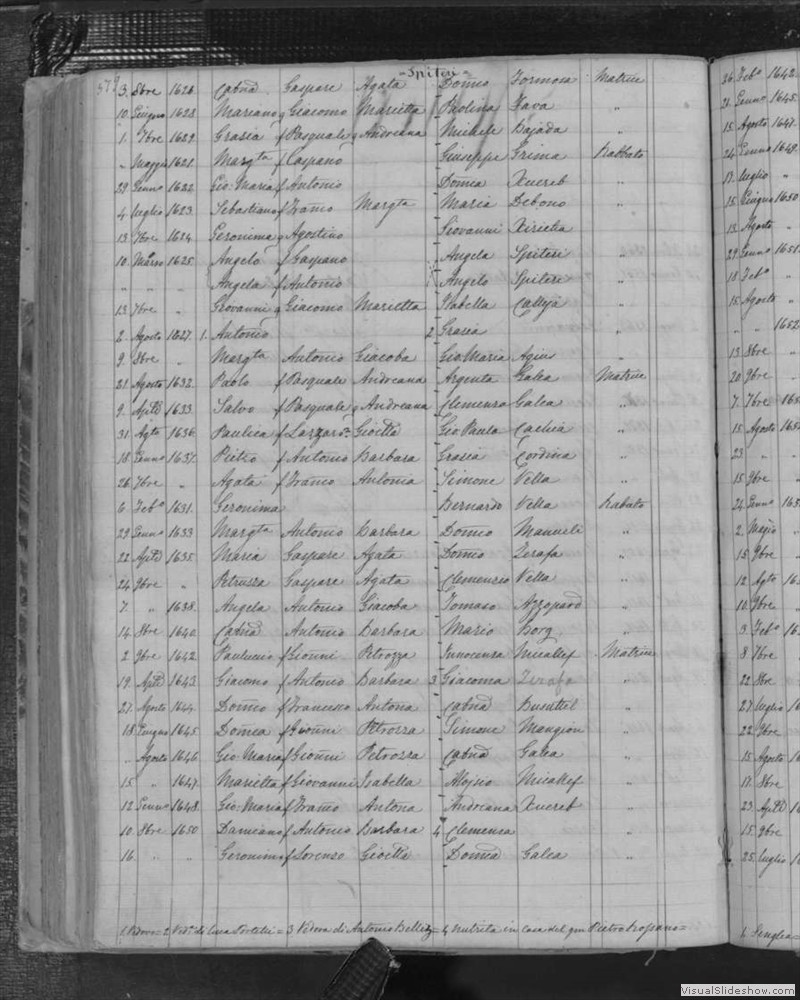 379 = Spiteri =
3 8bre 1626 Cabnd Gaspare Agata Domco Formosa Matrice
10 Giugno 1628 Mariano f Giacomo Marietta Paolina Fava "
1 7bre 1629 Grasia f Pasquale q Andreana Michele Bajada "
" Maggio 1621 Margta f Caspano Giuseppe Grima Rabbato
29 Genno 1622 Gio: Maria f Antonio Domca Xuereb "
4 Luglio 1623 Sebastiano f Franco Margta Maria Debono "
13 7bre 1624 Geronima q Agostino Giovanni Xiriclia "
10 Marzo 1625 Angela f Gaspano Angela Spiteri "
" " " Angela f Antonio Angelo Spiteri "
13 7bre " Giovanni q Giacomo Marietta Isabella Calleja "
2 Agosto 1627 1. Antonio 2 Grasia "
9 8bre " Margta Antonio Giacoba Gio Maria Agius "
21 Agosto 1632 Paolo f Pasquale Andreana Argenta Galea Matrice
9 Aple 1633 Salvo f Pasquale q Andreana Clemenza Galea "
31 Agto 1636 Paulica f Lazaro Gioella Gio Paulo Cachia "
18 Genno 1637 Pietro f Antonio Barbara Grasia Cordina "
26 7bre " Agata f Franco Antonia Simone Vella "
6 Febo 1631 Geronima Bernardo Vella Rabato
29 Genno 1633 Margta Antonio Barbara Domco Manueli "
22 Aple 1635 Maria Gaspare Agata Domco Zerafa "
24 9bre " Petruzza Gaspare Agata Clemenzio Vella "
7 " 1638 Angela Antonio Giacoba Tomaso Azzopard "
14 8bre 1640 Cabnd Antonio Barbara Mario Borg "
2 9bre 1642 Paulucio f Gionni Petrozza Innocenza Micallef Matrice
19 Aple 1643 Giacomo f Antonio Barbara 3 Giacoma Zerafa "
27 Agosto 1644 Domco f Francesco Antona Cabnd Busuttil "
18 Giugno 1645 Domca f Gionni Petrozza Simone Mangion "
" Agosto 1646 Gio Maria f Gionni Petrozza Cabnd Galea "
15 " 1647 Marietta f Giovanni Isabella Aloysio Micallef "
12 Genno 1648 Gio: Maria f Franco Antona Andreana Xuereb "
10 8bre 1650 Damiano f Antonio Barbara 4 Clemenza "
16 " " Geronimo f Lorenzo Gioella Domca Galea "
1 Vedovo = 2 Veda di Luca Portelli = 3 Vedova di Antonio Bellizz = 4 Nutrita in casa del qm Pietro =
26 Febo 1642
21 Genno 1645
15 Agosto 1647
24 Genno 1648
17 Luglio "
15 Giugno 1650
13 Agosto "
29 Genno 1651
18 Febo "
15 Agosto "
" " 1652
13 8bre "
20 9bre "
7 7bre
15 Agosto
23 "
15 9bre
24 Genno
2 Magio
15 9bre
12 Agto
10 9bre
3 Febo
8 7bre
22 8bre
27 Luglio
22 9bre
15 Agosto
17 8bre
23 Aple
15 9bre
25 Luglio
1. Senglea =
VisualSlideshow.com